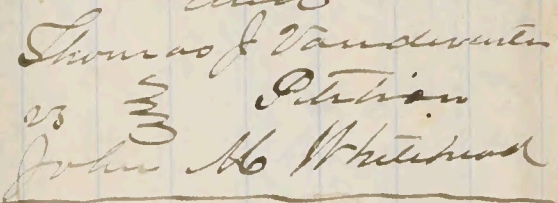 Thomas J Vandeventer
vs Petition
John M Whitehead